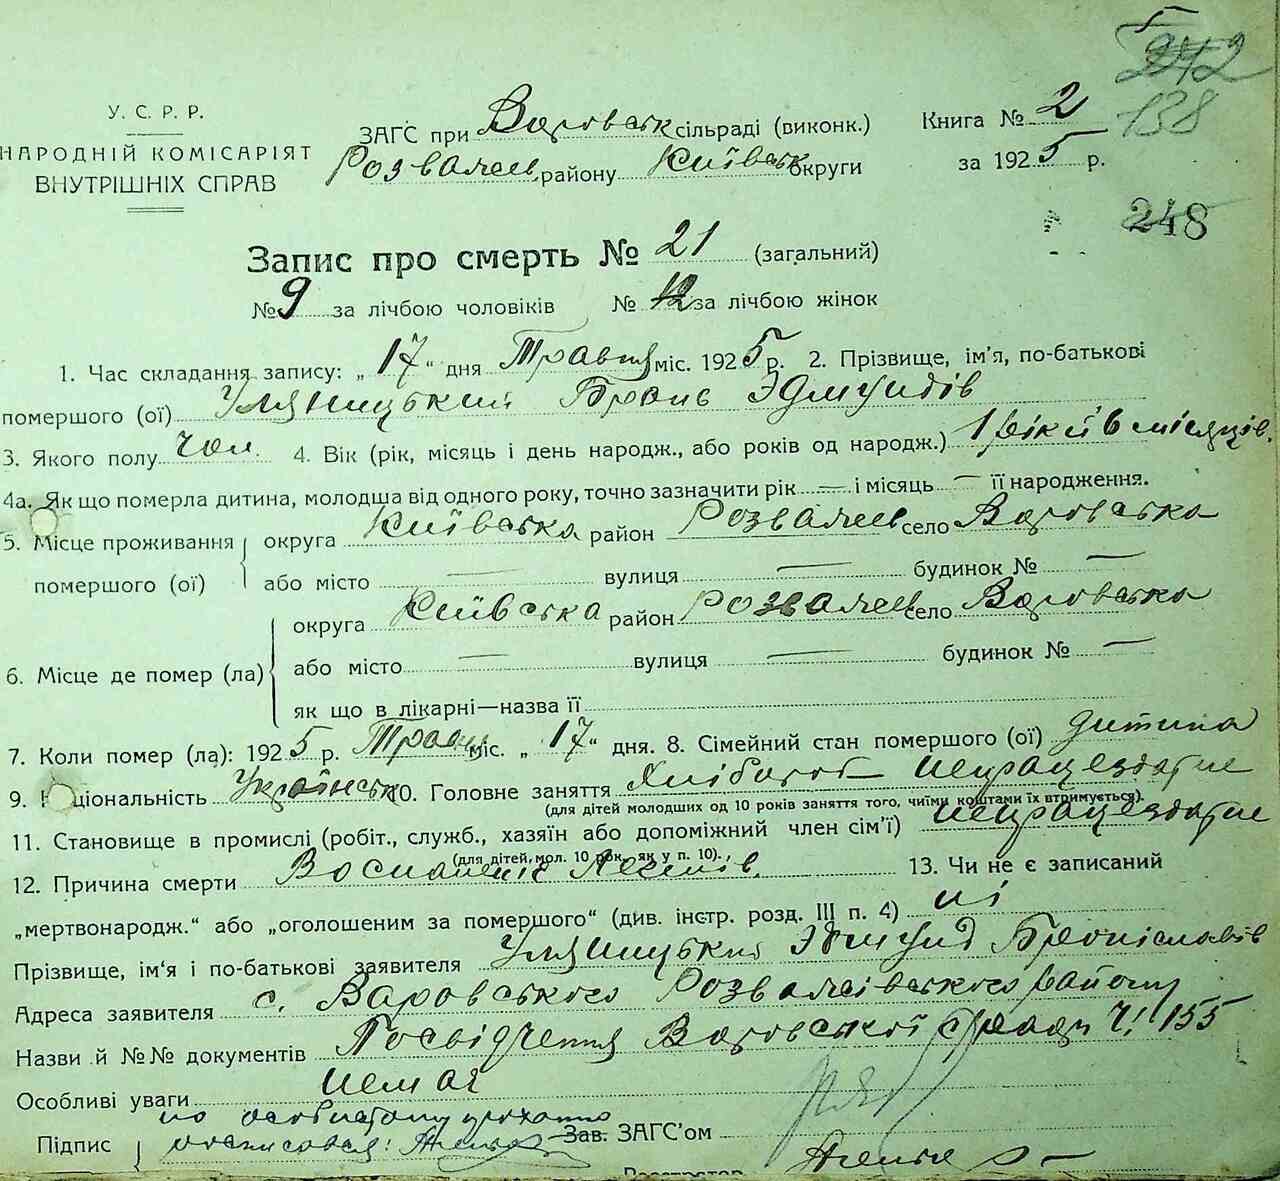 242
138
У. С. Р. Р.
НАРОДНІЙ КОМІСАРІЯТ
ВНУТРІШНІХ СПРАВ
ЗАГС при Варовськ сільраді (виконк.)
Розважев району Київськ округи
Книга № 2
за 1925 р.
248
Запис про смерть № 21 (загальний)
№ 9 за лічбою чоловіків № 12 за лічбою жінок
1. Час складання запису: „ 17 “ дня Травня міс. 1925 р. 2. Прізвище, ім’я, по-батькові
помершого (ої) Уляницький Бронь Эдмундів
3. Якого полу чол. 4. Вік (рік, місяць і день народж., або років од народж.) 1 рік й 6 місяців.
4а. Як що померла дитина, молодша від одного року, точно зазначити рік — і місяць — її народження.
5. Місце проживання помершого (ої) округа Київська район Розважев село Варовська
або місто — вулиця — будинок № —
6. Місце де помер (ла) округа Київська район Розважев село Варовська
або місто — вулиця — будинок № —
як що в лікарні—назва її
7. Коли помер (ла): 1925 р. Травн міс. „ 17 “ дня. 8. Сімейний стан помершого (ої) дитина
9. Національність Українськ 10. Головне заняття Хлібороб непрацездатне
(для дітей молодших од 10 років заняття того, чиїми коштами їх втримується).
11. Становище в промислі (робіт., служб., хазяїн або допоміжний член сім’ї) непрацездатне
(для дітей, мол. 10 рок. як у п. 10).
12. Причина смерти Воспаленіє Легенів. 13. Чи не є записаний
„мертвонародж.“ або „оголошеним за померлого“ (див. інстр. розд. III п. 4) ні
Прізвище, ім‘я і по-батькові заявителя Уляницький Эдмунд Броніславів
Адреса заявителя с. Варовського Розважівського району
Назви й №№ документів Посвідчення Варовської сради Ч! 155
Особливі уваги немає
Підпис по особистому
росписовся: Зав. ЗАГС’ом
Реєстратор